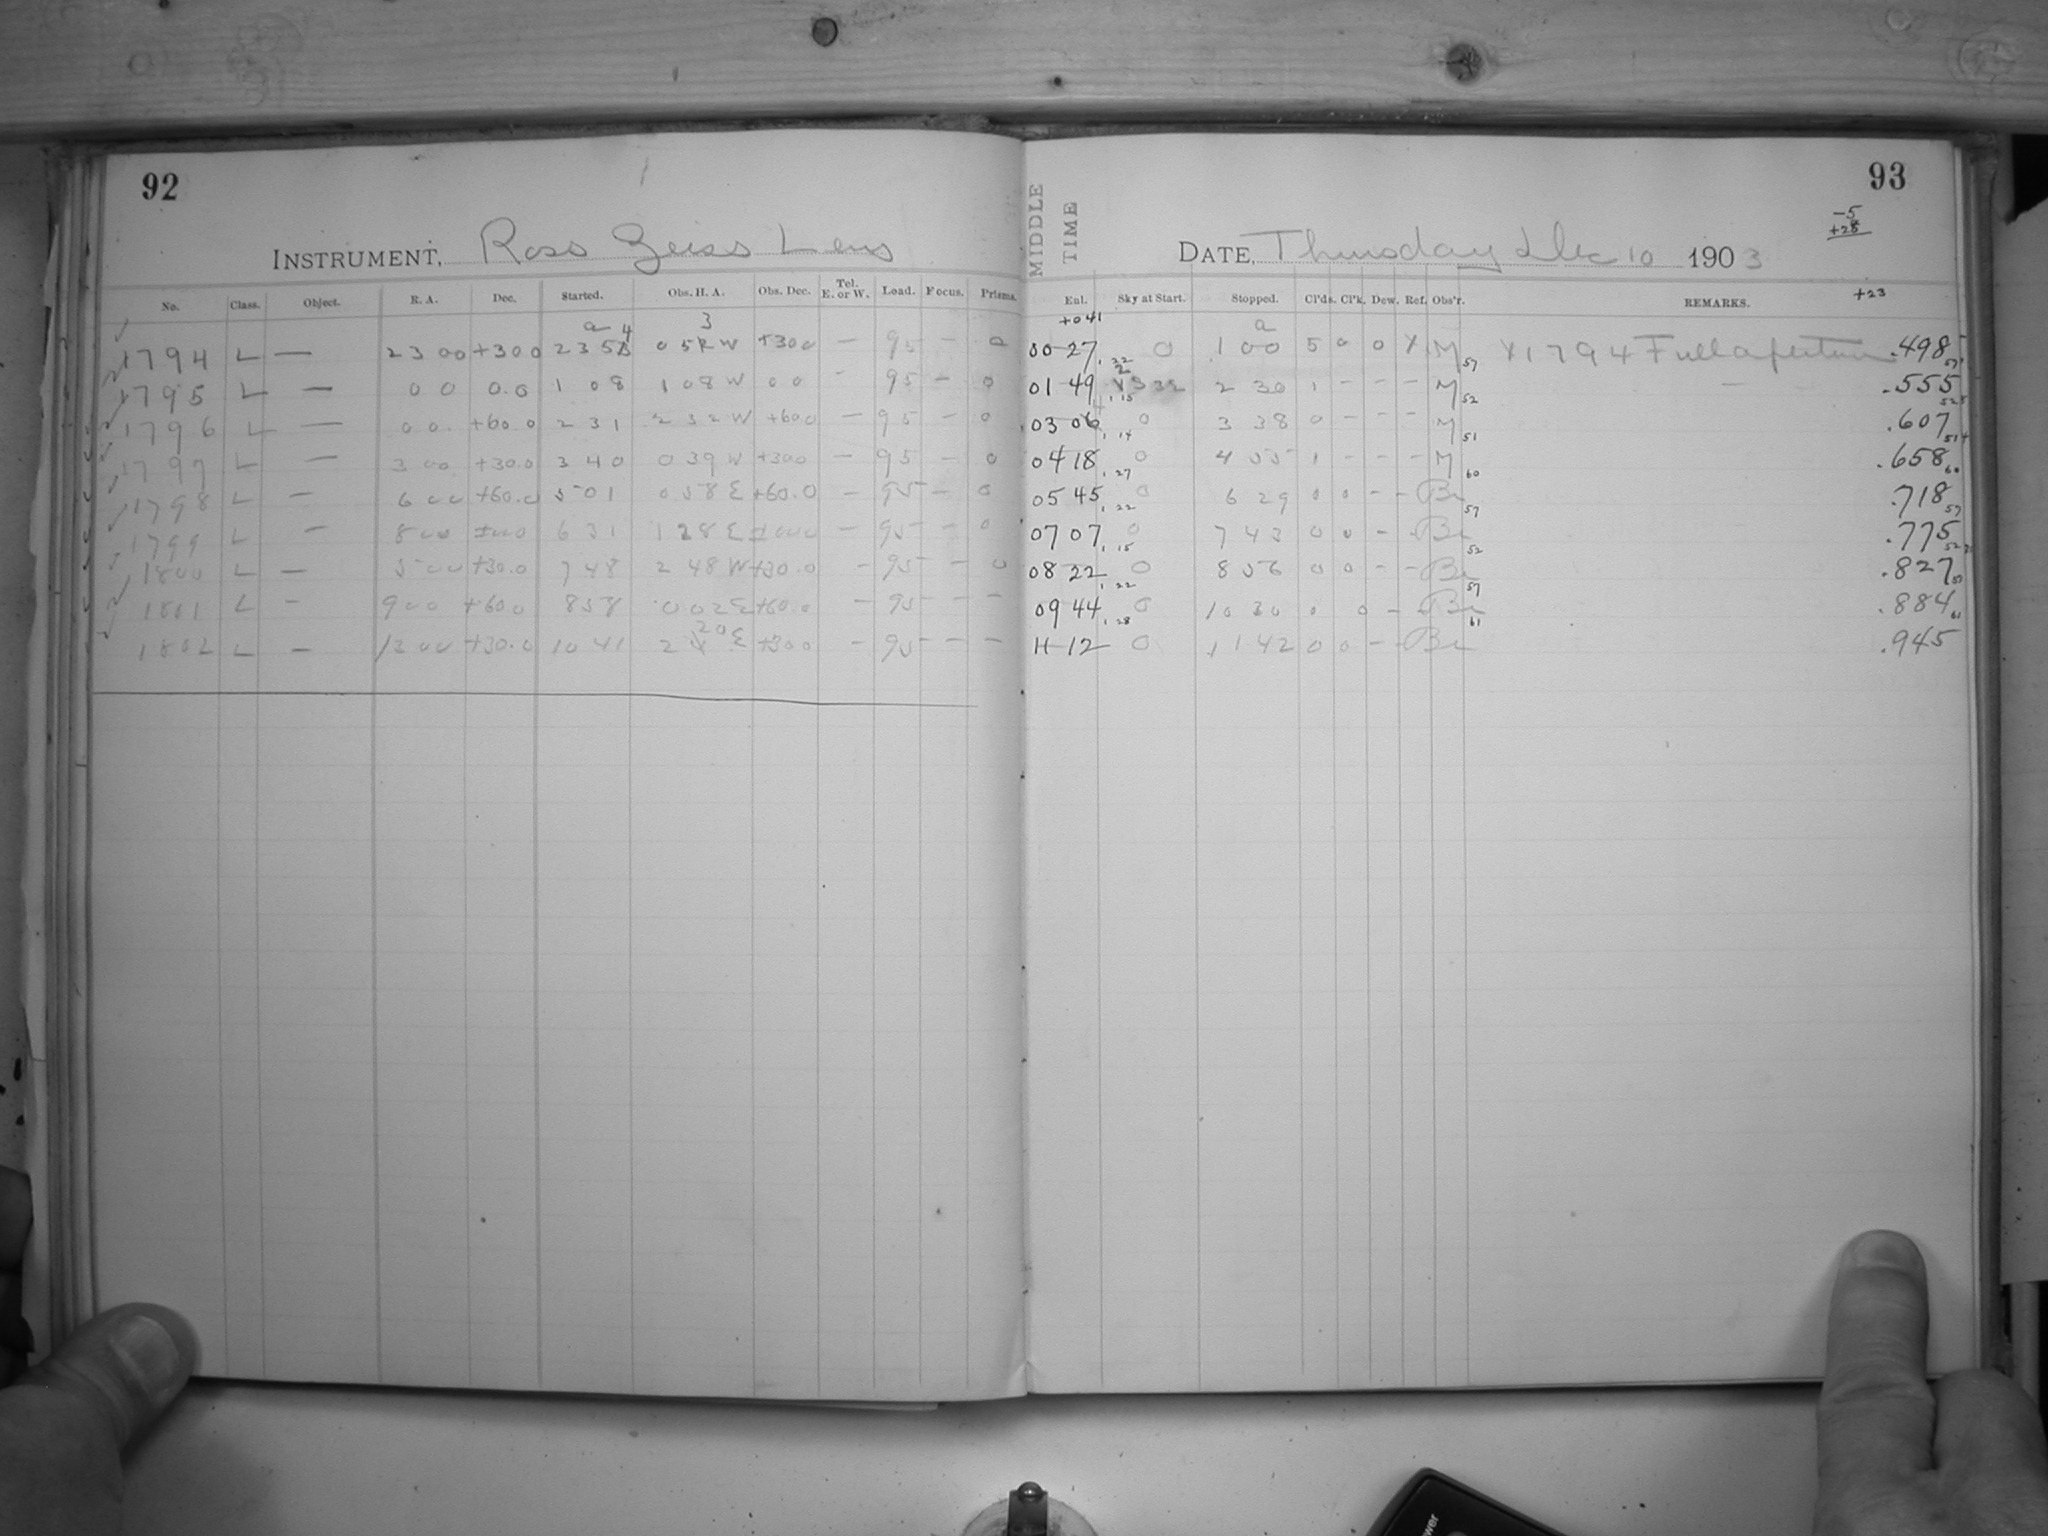 92
INSTRUMENT, Ross Zeiss Lens
No. Class. Object. R. A. Dec. Started. Obs. H. A. Obs. Dec. Tel. E. or W. Load. Focus. Prisms.
1794 L — 23 00 +300 23 54 0 53 W +300 — 95 — 0
1795 L — 0 0 0.0 1 08 1 08 W 0 0 - 95 — 0
1796 L — 0 0 +60.0 2 31 2 32 W +600 — 95 — 0
1797 L — 3 00 +30.0 3 40 0 39 W +300 — 95 — 0
1798 L — 6 00 +60.0 5 01 0 58 E +60.0 — 95 — 0
1799 L — 8 00 ±000 6 31 1 28 E ±000 — 95 — 0
1800 L — 5 00 +30.0 7 48 2 48 W +30.0 — 95 — 0
1801 L — 9 00 +60.0 8 58 0 02 E +60.0 — 95 — —
1802 L — 13 00 +30.0 10 41 2 20 E +300 — 95 — — —
93
-5
+28
MIDDLE TIME
DATE, Thursday Dec 10 1903
+23
Ent. Sky at Start. Stopped. Cl'ds. Cl'k. Dew. Ref. Obs'r. REMARKS.
+041
00 27 0 1 00 5 0 0 X M X1794 Full aperture .498
01 49 2 30 1 - - - M .555
03 06 0 3 38 0 - - - M .607
04 18 0 4 55 1 - - - M .658
05 45 0 6 29 0 0 - - Br .718
07 07 0 7 43 0 0 - - Br .775
08 22 0 8 56 0 0 - - Br .827
09 44 0 10 30 0 0 - - Br .884
11 12 0 11 42 0 0 - - Br .945